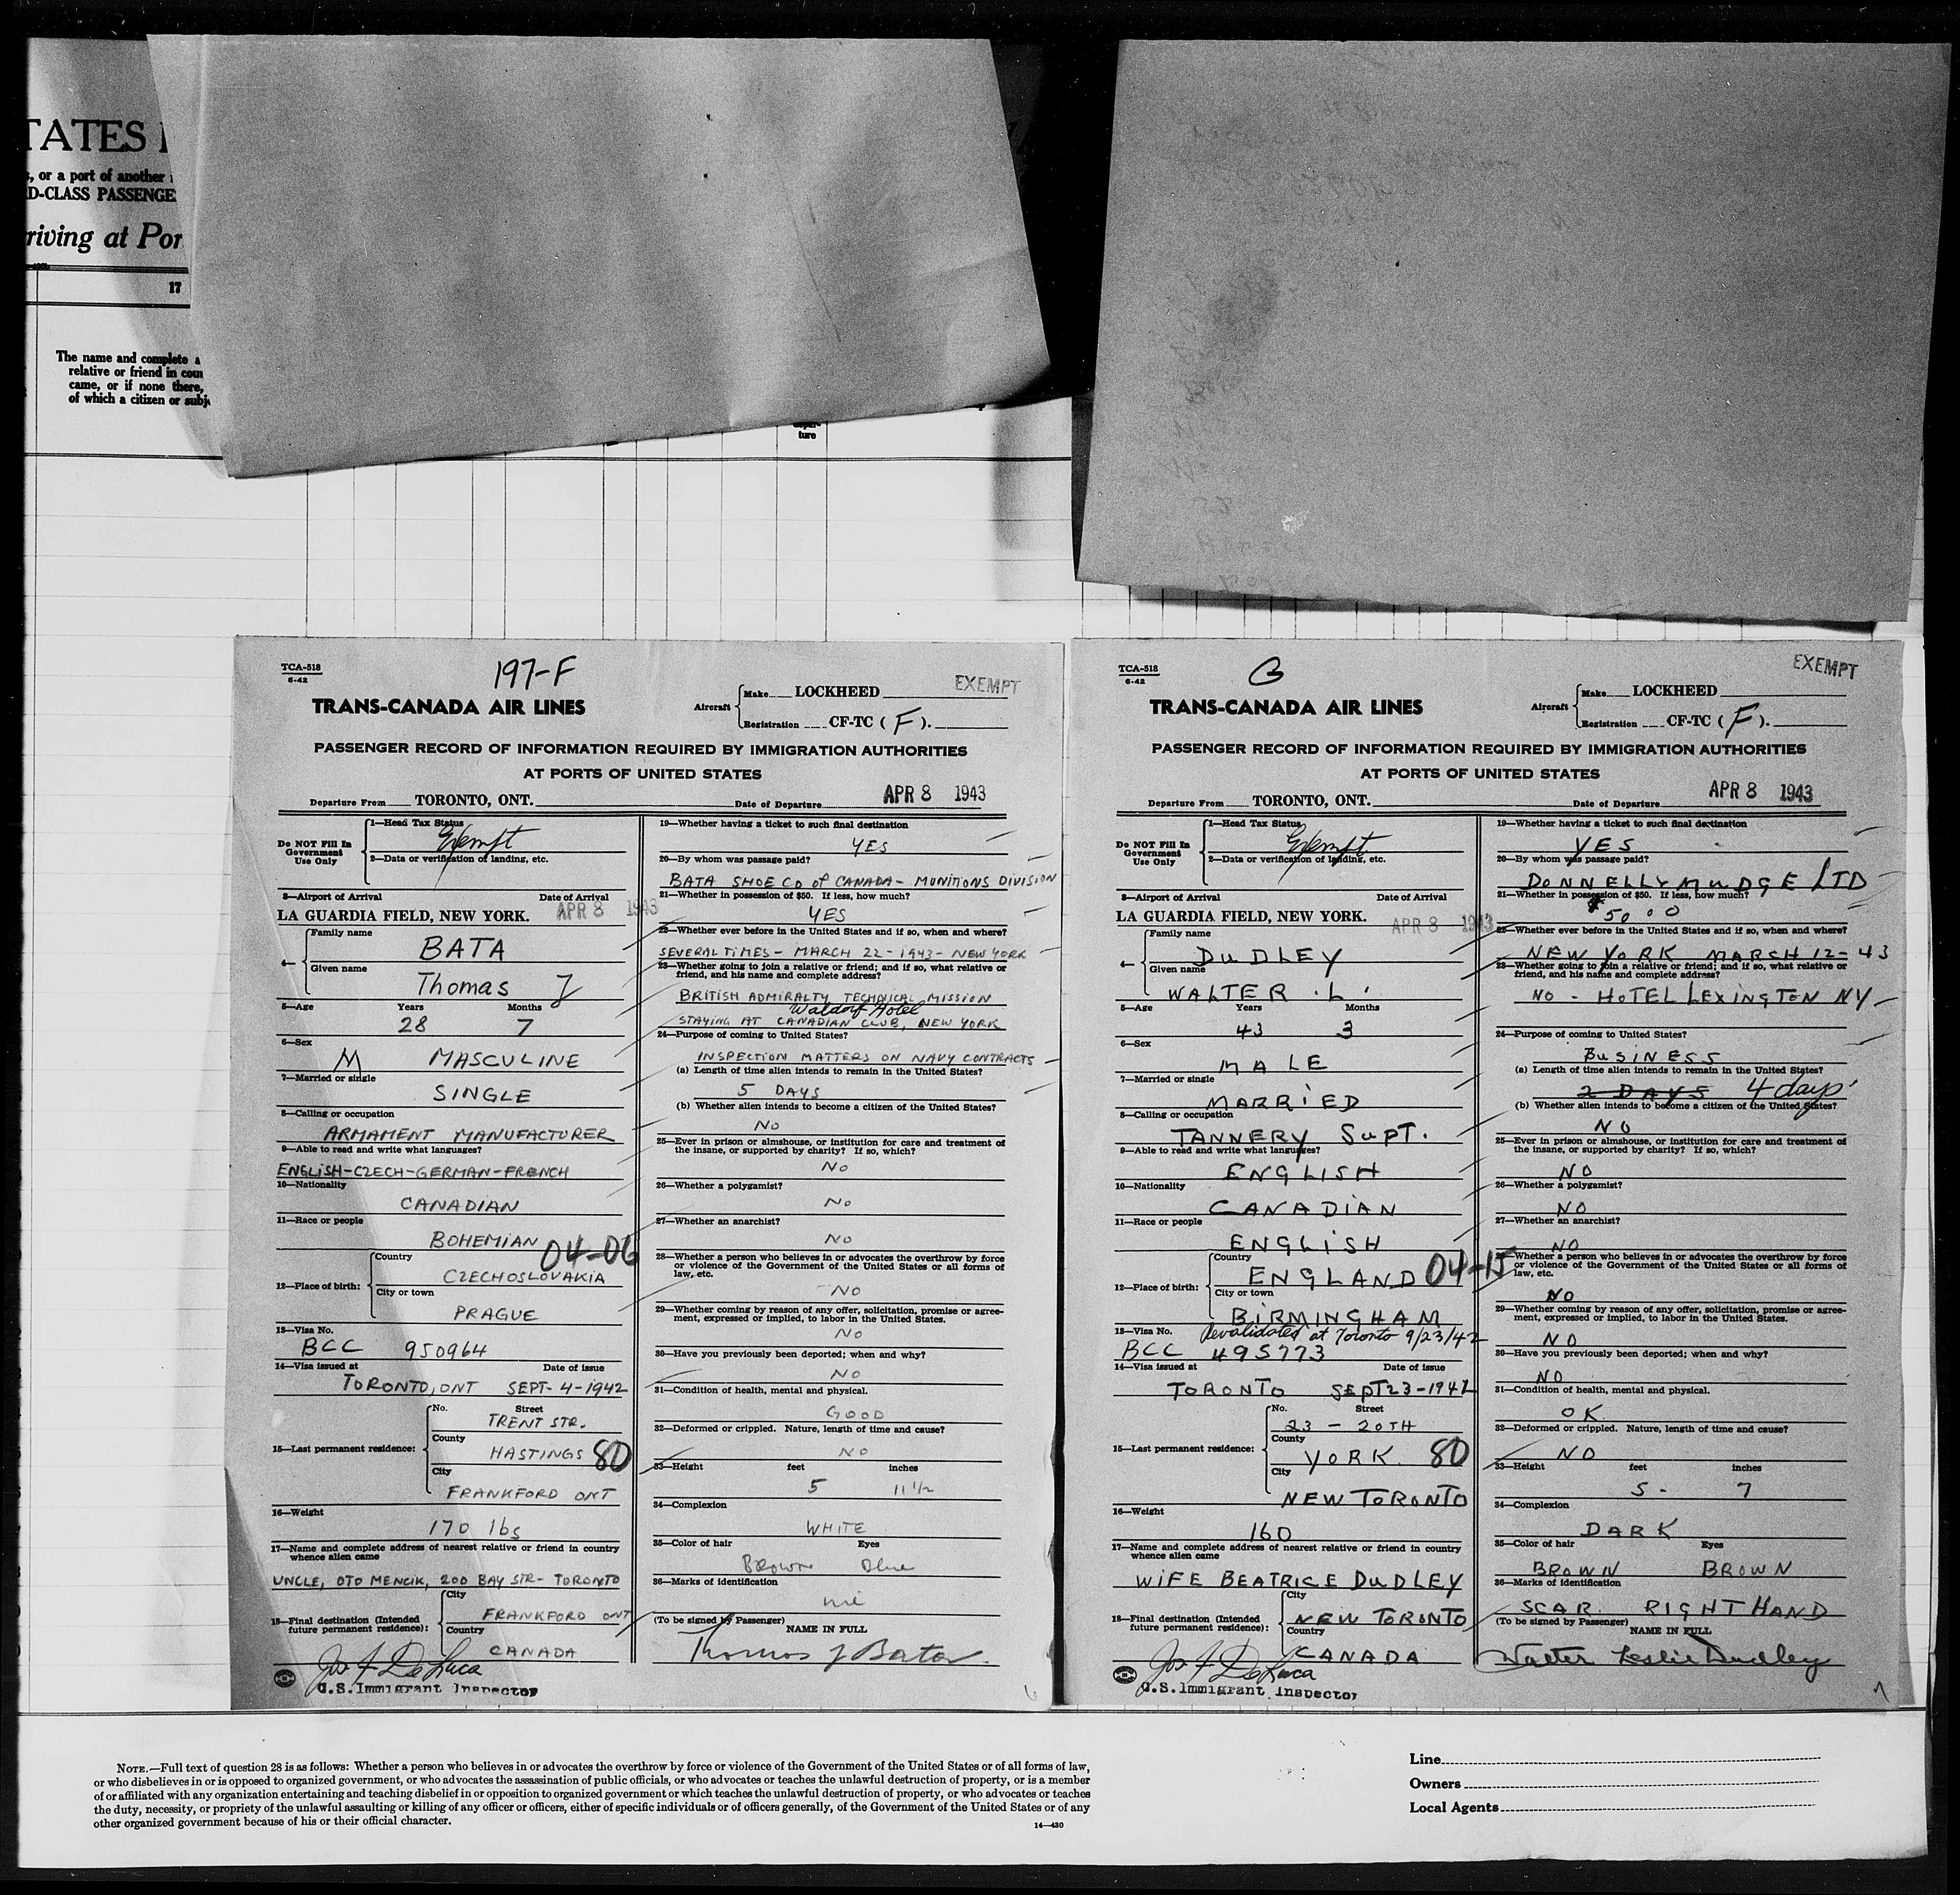 TATES
, or a port of another
D-CLASS PASSENGE
riving at Por
17
The name and complete a
relative or friend in coun
came, or if none there,
of which a citizen or subj
ture
TCA-518
6-42
197-F
EXEMPT
TRANS-CANADA AIR LINES
Aircraft
Make LOCKHEED
Registration CF-TC (F).
PASSENGER RECORD OF INFORMATION REQUIRED BY IMMIGRATION AUTHORITIES
AT PORTS OF UNITED STATES
Departure From TORONTO, ONT.
Date of Departure APR 8 1943
Do NOT Fill In
Government
Use Only
1—Head Tax Status
Exempt
2—Data or verification of landing, etc.
3—Airport of Arrival Date of Arrival
LA GUARDIA FIELD, NEW YORK. APR 8 1943
4—
Family name
BATA
Given name
Thomas J
5—Age Years Months
28 7
6—Sex
M MASCULINE
7—Married or single
SINGLE
8—Calling or occupation
ARMAMENT MANUFACTURER
9—Able to read and write what languages?
ENGLISH-CZECH-GERMAN-FRENCH
10—Nationality
CANADIAN
11—Race or people
BOHEMIAN 04-06
12—Place of birth:
Country
CZECHOSLOVAKIA
City or town
PRAGUE
13—Visa No.
BCC 950964
14—Visa issued at Date of issue
TORONTO, ONT SEPT-4-1942
15—Last permanent residence:
No. Street
TRENT STR.
County
HASTINGS 80
City
FRANKFORD ONT
16—Weight
170 lbs
17—Name and complete address of nearest relative or friend in country
whence alien came
UNCLE, OTO MENCIK, 200 BAY STR- TORONTO
18—Final destination (Intended
future permanent residence):
City
FRANKFORD ONT
Country
CANADA
Jos F De Luca
U.S. Immigrant Inspector
19—Whether having a ticket to such final destination
YES
20—By whom was passage paid?
BATA SHOE CO of CANADA- MUNITIONS DIVISION
21—Whether in possession of $50. If less, how much?
YES
22—Whether ever before in the United States and if so, when and where?
SEVERAL TIMES - MARCH 22-1943- NEW YORK
23—Whether going to join a relative or friend; and if so, what relative or
friend, and his name and complete address?
BRITISH ADMIRALTY TECHNICAL MISSION
Waldorf Hotel
STAYING AT CANADIAN CLUB, NEW YORK
24—Purpose of coming to United States?
INSPECTION MATTERS ON NAVY CONTRACTS
(a) Length of time alien intends to remain in the United States?
5 DAYS
(b) Whether alien intends to become a citizen of the United States?
NO
25—Ever in prison or almshouse, or institution for care and treatment of
the insane, or supported by charity? If so, which?
NO
26—Whether a polygamist?
NO
27—Whether an anarchist?
NO
28—Whether a person who believes in or advocates the overthrow by force
or violence of the Government of the United States or all forms of
law, etc.
NO
29—Whether coming by reason of any offer, solicitation, promise or agree-
ment, expressed or implied, to labor in the United States.
NO
30—Have you previously been deported; when and why?
NO
31—Condition of health, mental and physical.
GOOD
32—Deformed or crippled. Nature, length of time and cause?
NO
33—Height feet inches
5 11 1/2
34—Complexion
WHITE
35—Color of hair Eyes
Brown Blue
36—Marks of identification
nil
(To be signed by Passenger) NAME IN FULL
Thomas J Bata
TCA-518
6-42
G
EXEMPT
TRANS-CANADA AIR LINES
Aircraft
Make LOCKHEED
Registration CF-TC (F).
PASSENGER RECORD OF INFORMATION REQUIRED BY IMMIGRATION AUTHORITIES
AT PORTS OF UNITED STATES
Departure From TORONTO, ONT.
Date of Departure APR 8 1943
Do NOT Fill In
Government
Use Only
1—Head Tax Status
Exempt
2—Data or verification of landing, etc.
3—Airport of Arrival Date of Arrival
LA GUARDIA FIELD, NEW YORK. APR 8 1943
4—
Family name
DUDLEY
Given name
WALTER L.
5—Age Years Months
43 3
6—Sex
MALE
7—Married or single
MARRIED
8—Calling or occupation
TANNERY SUPT.
9—Able to read and write what languages?
ENGLISH
10—Nationality
CANADIAN
11—Race or people
ENGLISH
12—Place of birth:
Country
ENGLAND 04-15
City or town
BIRMINGHAM
13—Visa No. Revalidated at Toronto 9/23/42
BCC 495773
14—Visa issued at Date of issue
TORONTO SEPT 23-1942
15—Last permanent residence:
No. Street
23 - 20TH
County
YORK 80
City
NEW TORONTO
16—Weight
160
17—Name and complete address of nearest relative or friend in country
whence alien came
WIFE BEATRICE DUDLEY
18—Final destination (Intended
future permanent residence):
City
NEW TORONTO
Country
CANADA
Jos F De Luca
U.S. Immigrant Inspector
19—Whether having a ticket to such final destination
YES
20—By whom was passage paid?
DONNELLY MUDGE LTD
21—Whether in possession of $50. If less, how much?
$50.00
22—Whether ever before in the United States and if so, when and where?
NEW YORK MARCH 12-43
23—Whether going to join a relative or friend; and if so, what relative or
friend, and his name and complete address?
NO - HOTEL LEXINGTON NY
24—Purpose of coming to United States?
BUSINESS
(a) Length of time alien intends to remain in the United States?
2 DAYS 4 days
(b) Whether alien intends to become a citizen of the United States?
NO
25—Ever in prison or almshouse, or institution for care and treatment of
the insane, or supported by charity? If so, which?
NO
26—Whether a polygamist?
NO
27—Whether an anarchist?
NO
28—Whether a person who believes in or advocates the overthrow by force
or violence of the Government of the United States or all forms of
law, etc.
NO
29—Whether coming by reason of any offer, solicitation, promise or agree-
ment, expressed or implied, to labor in the United States.
NO
30—Have you previously been deported; when and why?
NO
31—Condition of health, mental and physical.
OK
32—Deformed or crippled. Nature, length of time and cause?
NO
33—Height feet inches
5 - 7
34—Complexion
DARK
35—Color of hair Eyes
BROWN BROWN
36—Marks of identification
SCAR RIGHT HAND
(To be signed by Passenger) NAME IN FULL
Walter Leslie Dudley
NOTE.—Full text of question 28 is as follows: Whether a person who believes in or advocates the overthrow by force or violence of the Government of the United States or of all forms of law,
or who disbelieves in or is opposed to organized government, or who advocates the assassination of public officials, or who advocates or teaches the unlawful destruction of property, or is a member
of or affiliated with any organization entertaining and teaching disbelief in or opposition to organized government or which teaches the unlawful destruction of property, or who advocates or teaches
the duty, necessity, or propriety of the unlawful assaulting or killing of any officer or officers, either of specific individuals or of officers generally, of the Government of the United States or of any
other organized government because of his or their official character.
14—430
Line
Owners
Local Agents